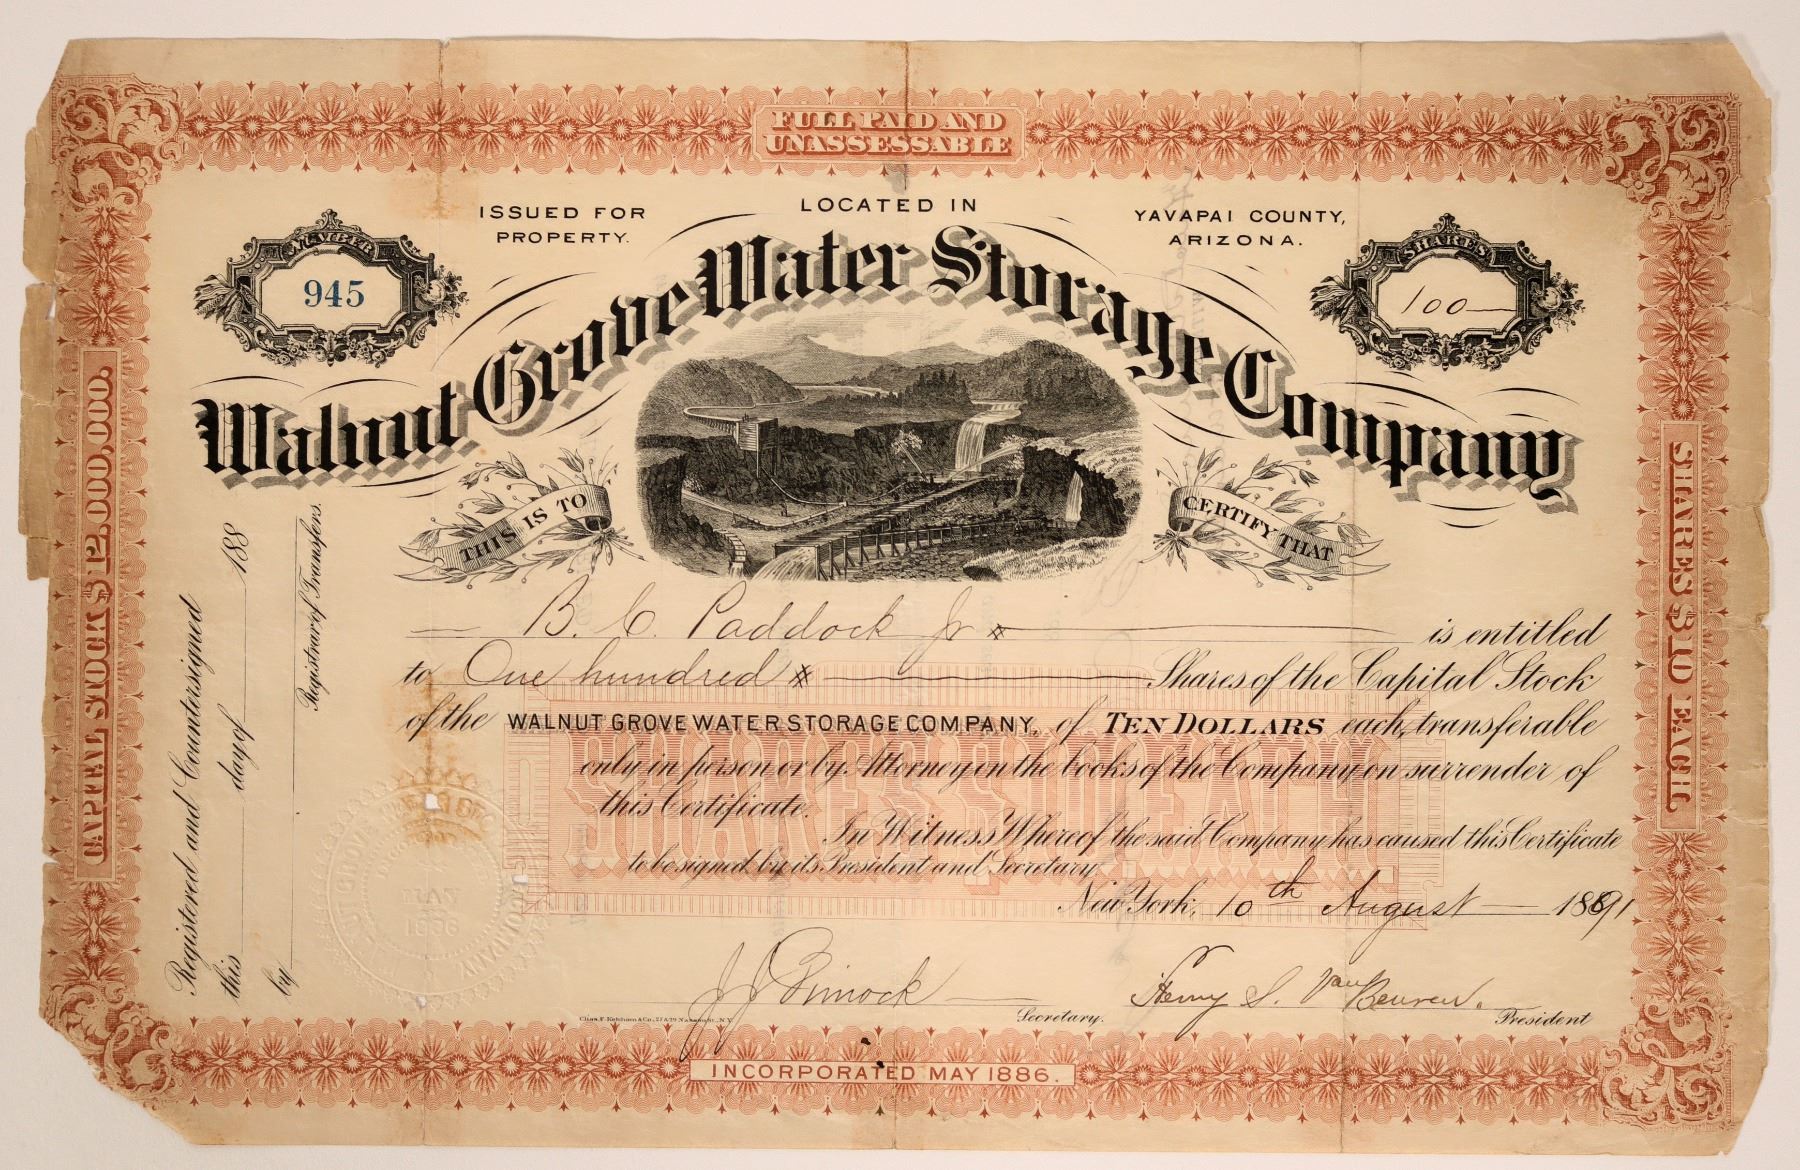 FULL PAID AND
UNASSESSABLE
ISSUED FOR
PROPERTY.
LOCATED IN
YAVAPAI COUNTY,
ARIZONA.
NUMBER
945
SHARES
100
Walnut Grove Water Storage Company
THIS IS TO
CERTIFY THAT
B. C. Paddock Jr
is entitled
to One hundred Shares of the Capital Stock
of the WALNUT GROVE WATER STORAGE COMPANY, of TEN DOLLARS each, transferable
only in person or by Attorney on the books of the Company on surrender of
this Certificate.
In Witness Whereof the said Company has caused this Certificate
to be signed by its President and Secretary
New York, 10th August 1891
SHARES $10 EACH.
J J
Secretary.
Henry S. Van Beuren.
President
Chas. F. Ketcham & Co., 27 & 29 Nassau St., N.Y.
INCORPORATED MAY 1886.
CAPITAL STOCK $12,000,000.
SHARES $10 EACH.
Registered and Countersigned
this day of 188
by
Registrar of Transfers.
WALNUT GROVE
COMPANY
MAY
1886